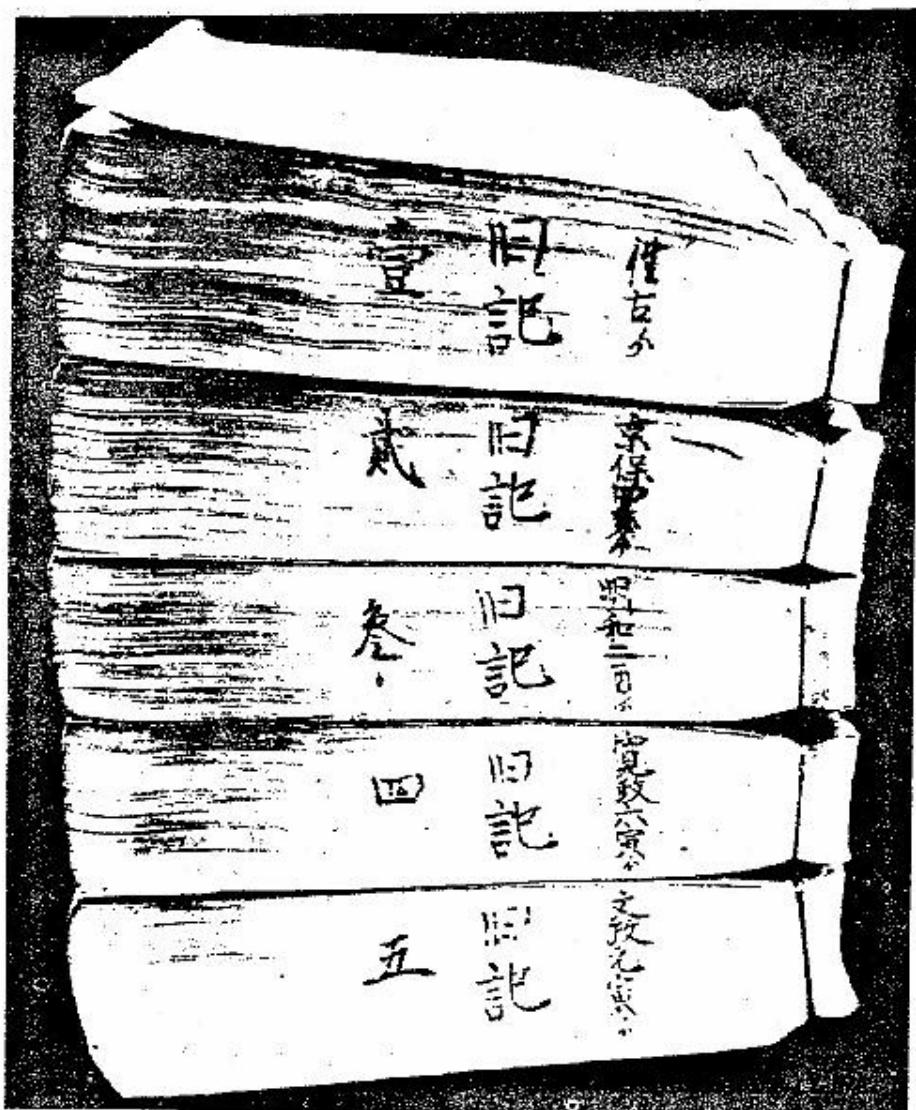 往古ゟ
旧記
壹
享保
旧記
貳
明和二酉ゟ
旧記
叁
寛政六寅ゟ
旧記
四
文政元寅ゟ
旧記
五